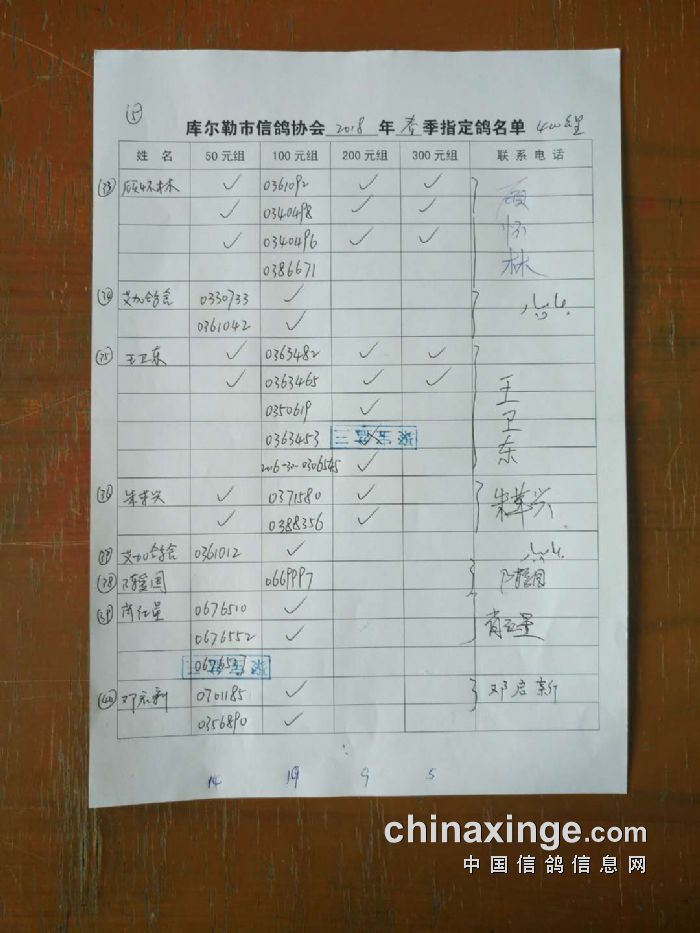 ⑤
库尔勒市信鸽协会 2018 年 春 季指定鸽名单 400公里
姓 名 50元组 100元组 200元组 300元组 联系电话
㉝ 顾怀林 ✓ 0361092 ✓ ✓ 顾怀林
✓ 0340498 ✓ ✓
✓ 0340496 ✓ ✓
0386671
艾力鸽舍 0330733 ✓
0361042 ✓
㉟ 王卫东 ✓ 0363482 ✓ ✓ 王卫东
✓ 0363465 ✓ ✓
0350619 ✓
0363453
2016-30-0306545 ✓
㊱ 朱革兴 ✓ 0371580 ✓ 朱革兴
✓ 0388356 ✓
㊲ 0361012 ✓
㊳ 0669997
㊴ 肖红星 0676510 ✓ 肖红星
0676552 ✓
067653
㊵ 邓启新 0701185 ✓ 邓启新
0356890 ✓
14 19 9 5
chinaxinge.com
中国信鸽信息网